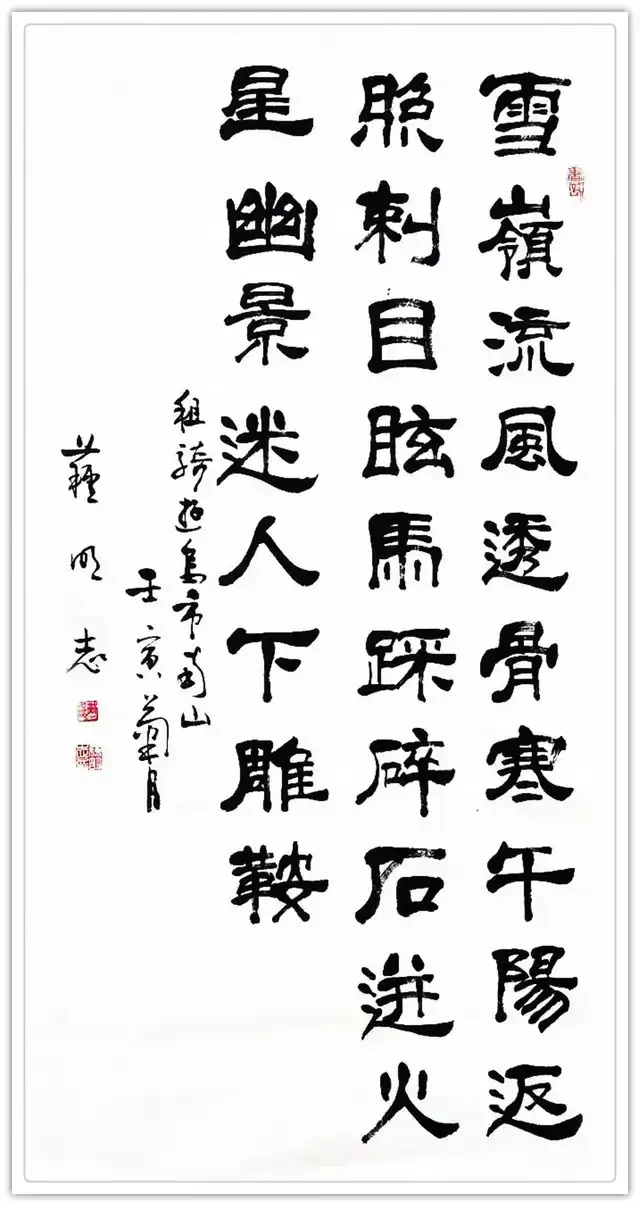 雪嶺流風透骨寒午陽返
照刺目眩馬踩碎石迸火
星幽景迷人下雕鞍
租騎遊烏市南山
壬寅菊月
蘇明志